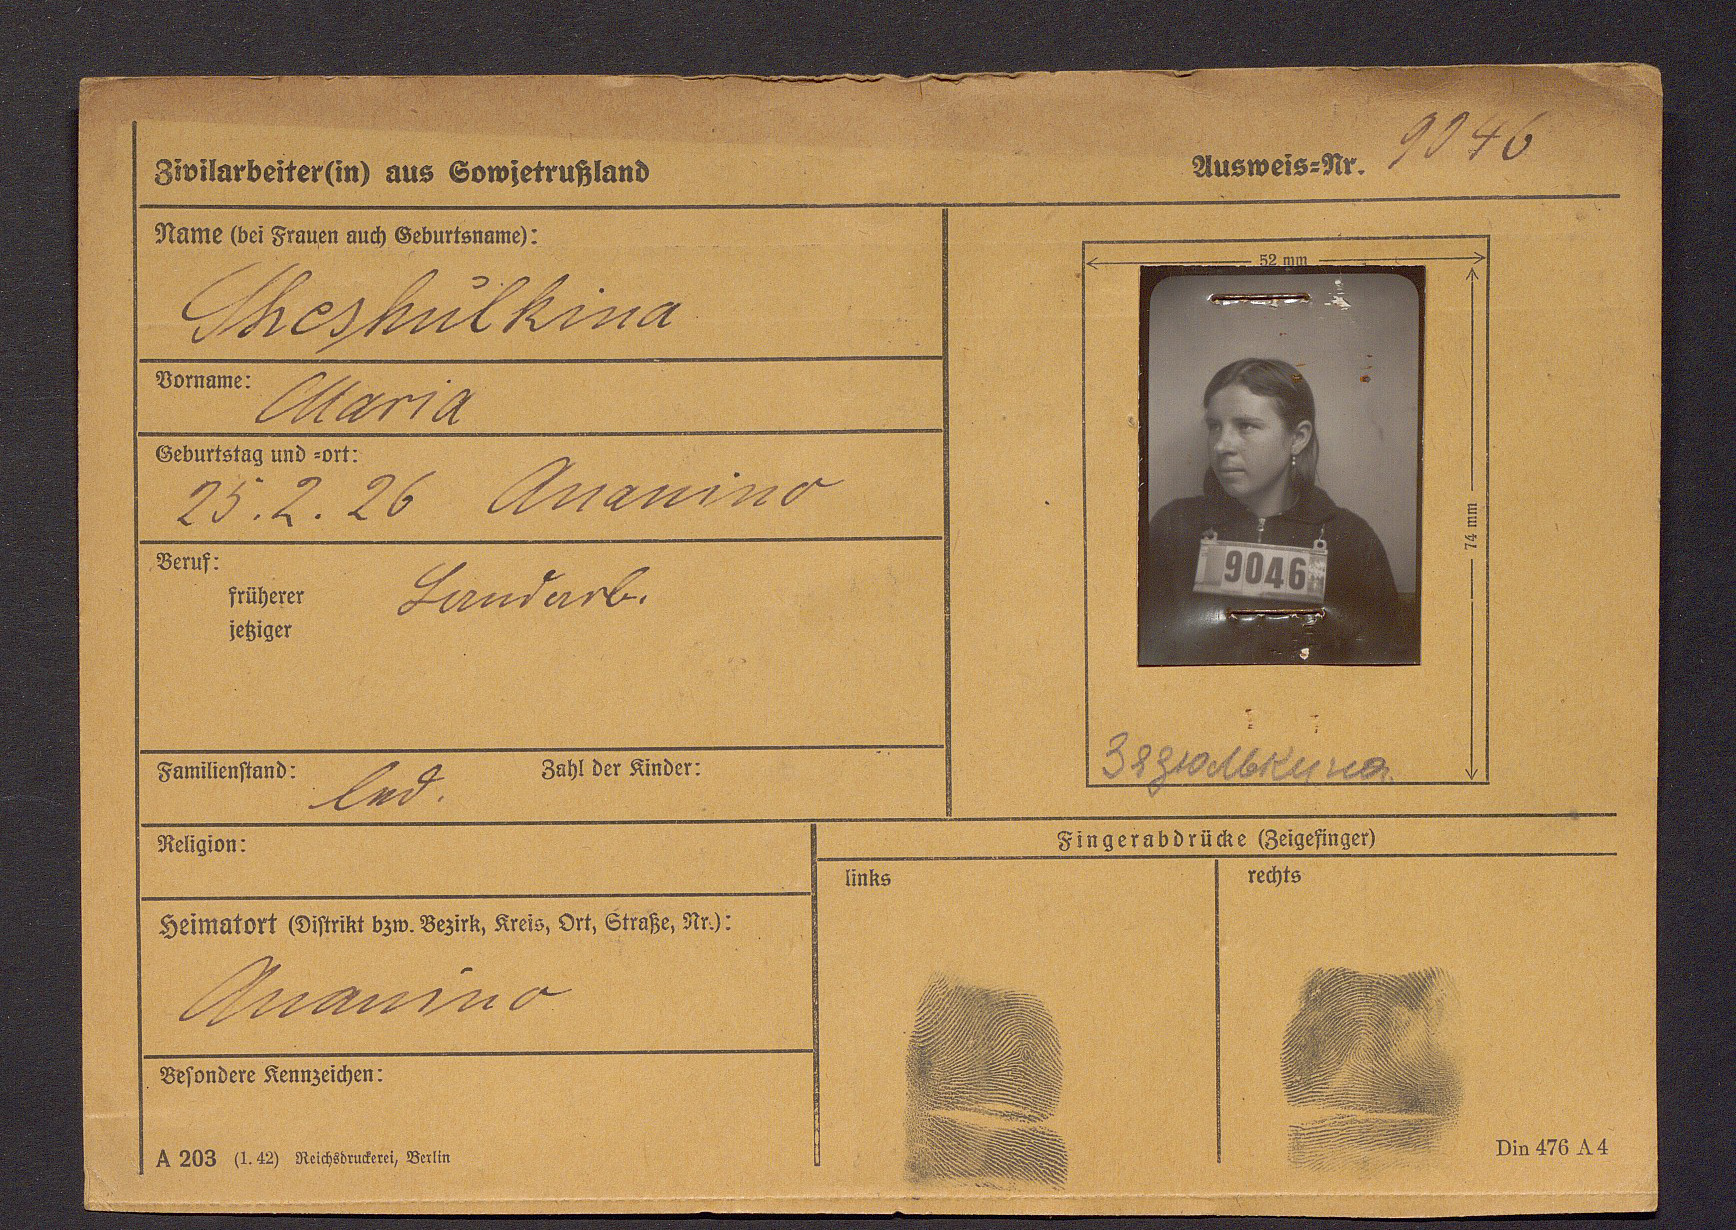 Zivilarbeiter(in) aus Sowjetrußland
Ausweis-Nr. 9046
Name (bei Frauen auch Geburtsname):
Maria
Vorname:
Geburtstag und -ort:
25.2.26 Ananino
Beruf:
früherer Landarb.
jetziger
Familienstand: led.
Zahl der Kinder:
Religion:
Heimatort (Distrikt bzw. Bezirk, Kreis, Ort, Straße, Nr.):
Ananino
Besondere Kennzeichen:
A 203 (1. 42) Reichsdruckerei, Berlin
52 mm
74 mm
9046
Зязюлькина
Fingerabdrücke (Zeigefinger)
links
rechts
Din 476 A 4